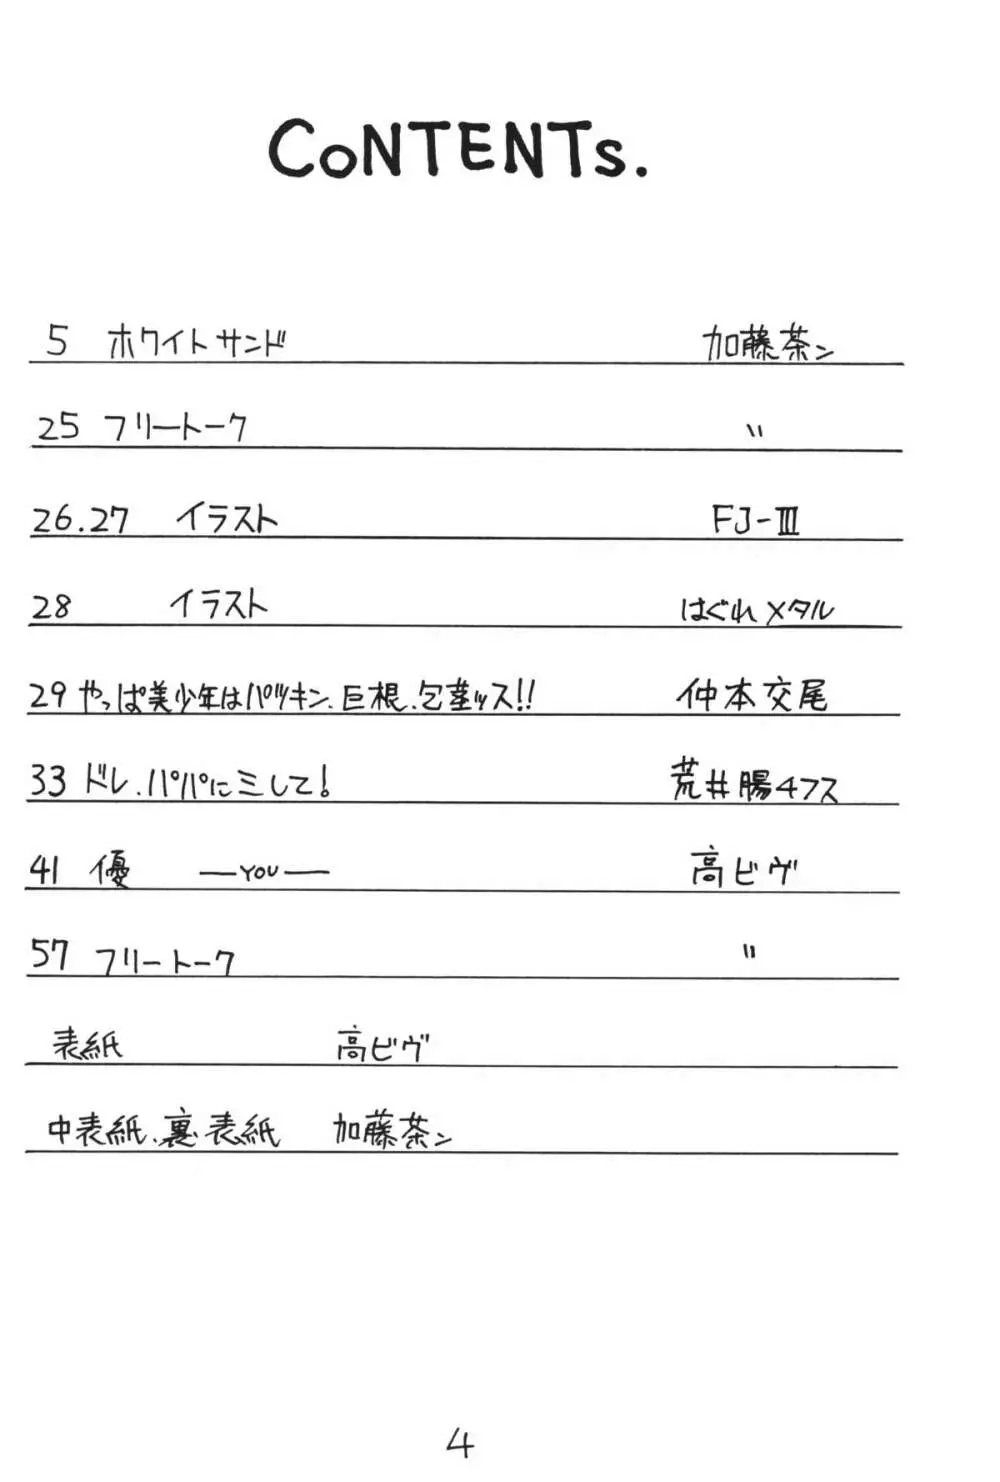 CoNTENTs.
5 ホワイトサンド 加藤茶ン
25 フリートーク 〃
26.27 イラスト FJ-III
28 イラスト はぐれメタル
29 やっぱ美少年はパツキン、巨根、包茎ッス!! 仲本交尾
33 ドレ、パパにミして! 荒井腸4フス
41 優 ―YOU― 高ビヴ
57 フリートーク 〃
表紙 高ビヴ
中表紙、裏表紙 加藤茶ン
4